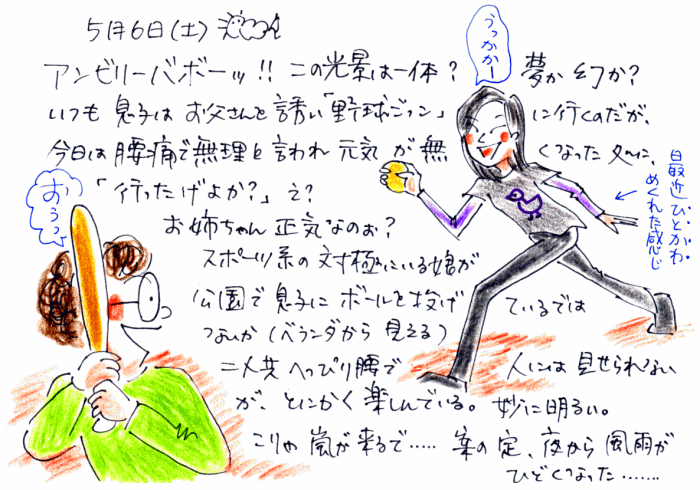 5月6日(土)
アンビリーバボーッ!! この光景は一体? 夢か幻か?
いつも息子はお父さんを誘い「野球ごっこ」に行くのだが、
今日は腰痛で無理と言われ元気が無くなった
「行ったげよか?」え?
お姉ちゃん正気なのぉ?
スポーツ系の対極にいる娘が
公園で息子にボールを投げているでは
ないか(ベランダから見える)
二人共へっぴり腰で人には見せられない
が、とにかく楽しんでいる。妙に明るい。
こりゃ嵐が来るで…‥ 案の定、夜から風雨が
ひどくなった…‥‥
うっかかー
おうっ
最近ひとかわ
めくれた感じ